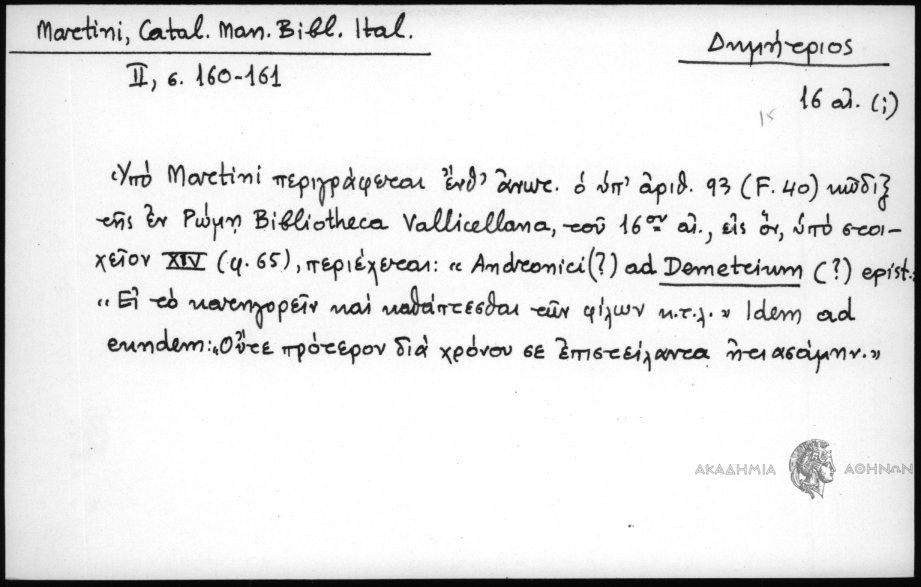 Martini, Catal. Man. Bibl. Ital.
II, σ. 160-161
Δημήτριος
16 αἰ. (;)
15
«Ὑπὸ Martini περιγράφεται ἔνθ' ἄνωτ. ὁ ὑπ' ἀριθ. 93 (F. 40) κῶδιξ
τῆς ἐν Ρώμῃ Bibliotheca Vallicellana, τοῦ 16ου αἰ., εἰς ὅν, ὑπὸ στοι-
χεῖον XIV (φ. 65), περιέχεται: « Andronici(?) ad Demetrium (?) epist.:
« Εἰ τὸ κατηγορεῖν καὶ καθάπτεσθαι τῶν φίλων κ.τ.λ.» Idem ad
eundem: «Οὔτε πρότερον διὰ χρόνου σε ἐπιστείλαντα ἠτιασάμην.»
ΑΚΑΔΗΜΙΑ ΑΘΗΝΩΝ